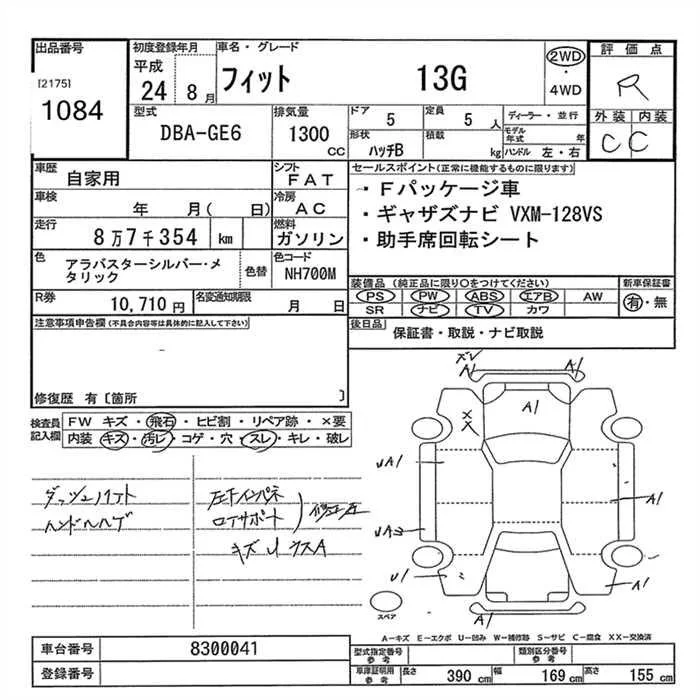 出品番号
[2175]
1084
初度登録年月
平成
24 8月
車名・グレード
フィット 13G
2WD
・
4WD
評価点
R
外装 内装
C C
型式
DBA-GE6
排気量
1300
CC
ドア
5
定員
5 人
形状
ハッチB
積載
kg
ディーラー・並行
モデル年式 年
ハンドル 左・右
車歴
自家用
シフト
FAT
車検
年 月( 日)
冷房
AC
走行
8万7千354 km
燃料
ガソリン
色
アラバスターシルバー・メ
タリック
色替
色コード
NH700M
R券
10,710 円
名変通知期限
月 日
セールスポイント(正常に機能するものに限ります)
・Fパッケージ車
・ギャザズナビ VXM-128VS
・助手席回転シート
装備品 (純正品に限り○をつけてください)
PS PW ABS エアB AW
SR ナビ TV カワ
新車保証書
有・無
後日品
保証書・取説・ナビ取説
注意事項申告欄(不具合内容等は具体的に記入して下さい)
修復歴 有〔箇所 〕
検査員
記入欄
FW キズ・飛石・ヒビ割・リペア跡・×要
内装 キズ・汚レ・コゲ・穴・スレ・キレ・破レ
ハンドルハゲ
左下インパネ
ロアサポート
修正
ズレ
A1
A1
A1
XX
UA1
UA2
U1
A1
A1
A1
スペア
A−キズ E−エクボ U−凹み W−補修跡 S−サビ C−腐食 XX−交換済
車台番号
8300041
登録番号
型式指定番号
参考
類別区分番号
参考
車庫証明用
参考
長さ 390 cm 幅 169 cm 高さ 155 cm